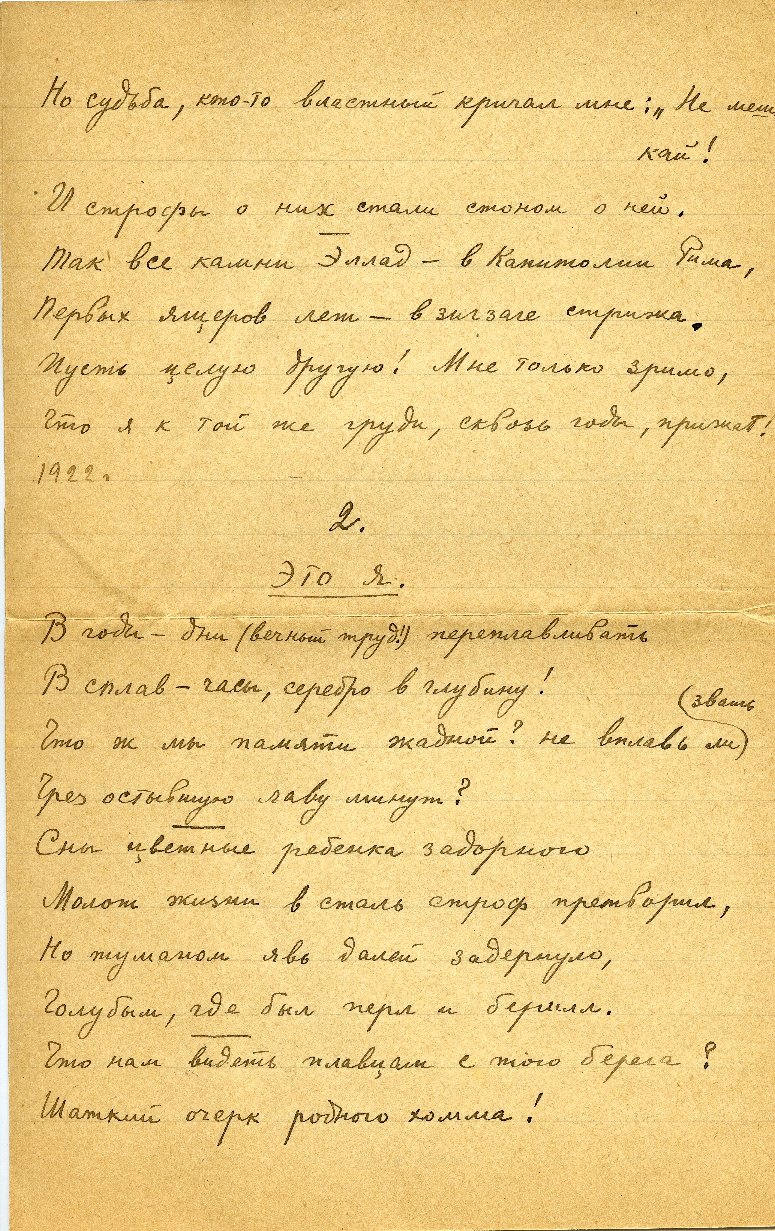 Но судьба, кто-то властный кричал мне: „Не меш
кай!
И строфы о них стали стоном о ней.
Так все камни Эллад – в Капитолии Рима,
Первых ящеров лет – в зигзаге стрижа.
Пусть целую другую! Мне только зримо,
Что я к той же груди, сквозь годы, прижат!
1922.
2.
Это я.
В годы – дни (вечный труд!) переплавливать
В сплав – часы, серебро в глубину!
(звать
Что ж мы памяти жадной? не вплавь ли)
Чрез остывшую лаву минут?
Сны цветные ребенка задорного
Молот жизни в сталь строф претворил,
Но туманом явь далей задернуло,
Голубым, где был перл и берилл.
Что нам видеть пловцам с того берега?
Шаткий очерк родного холма!